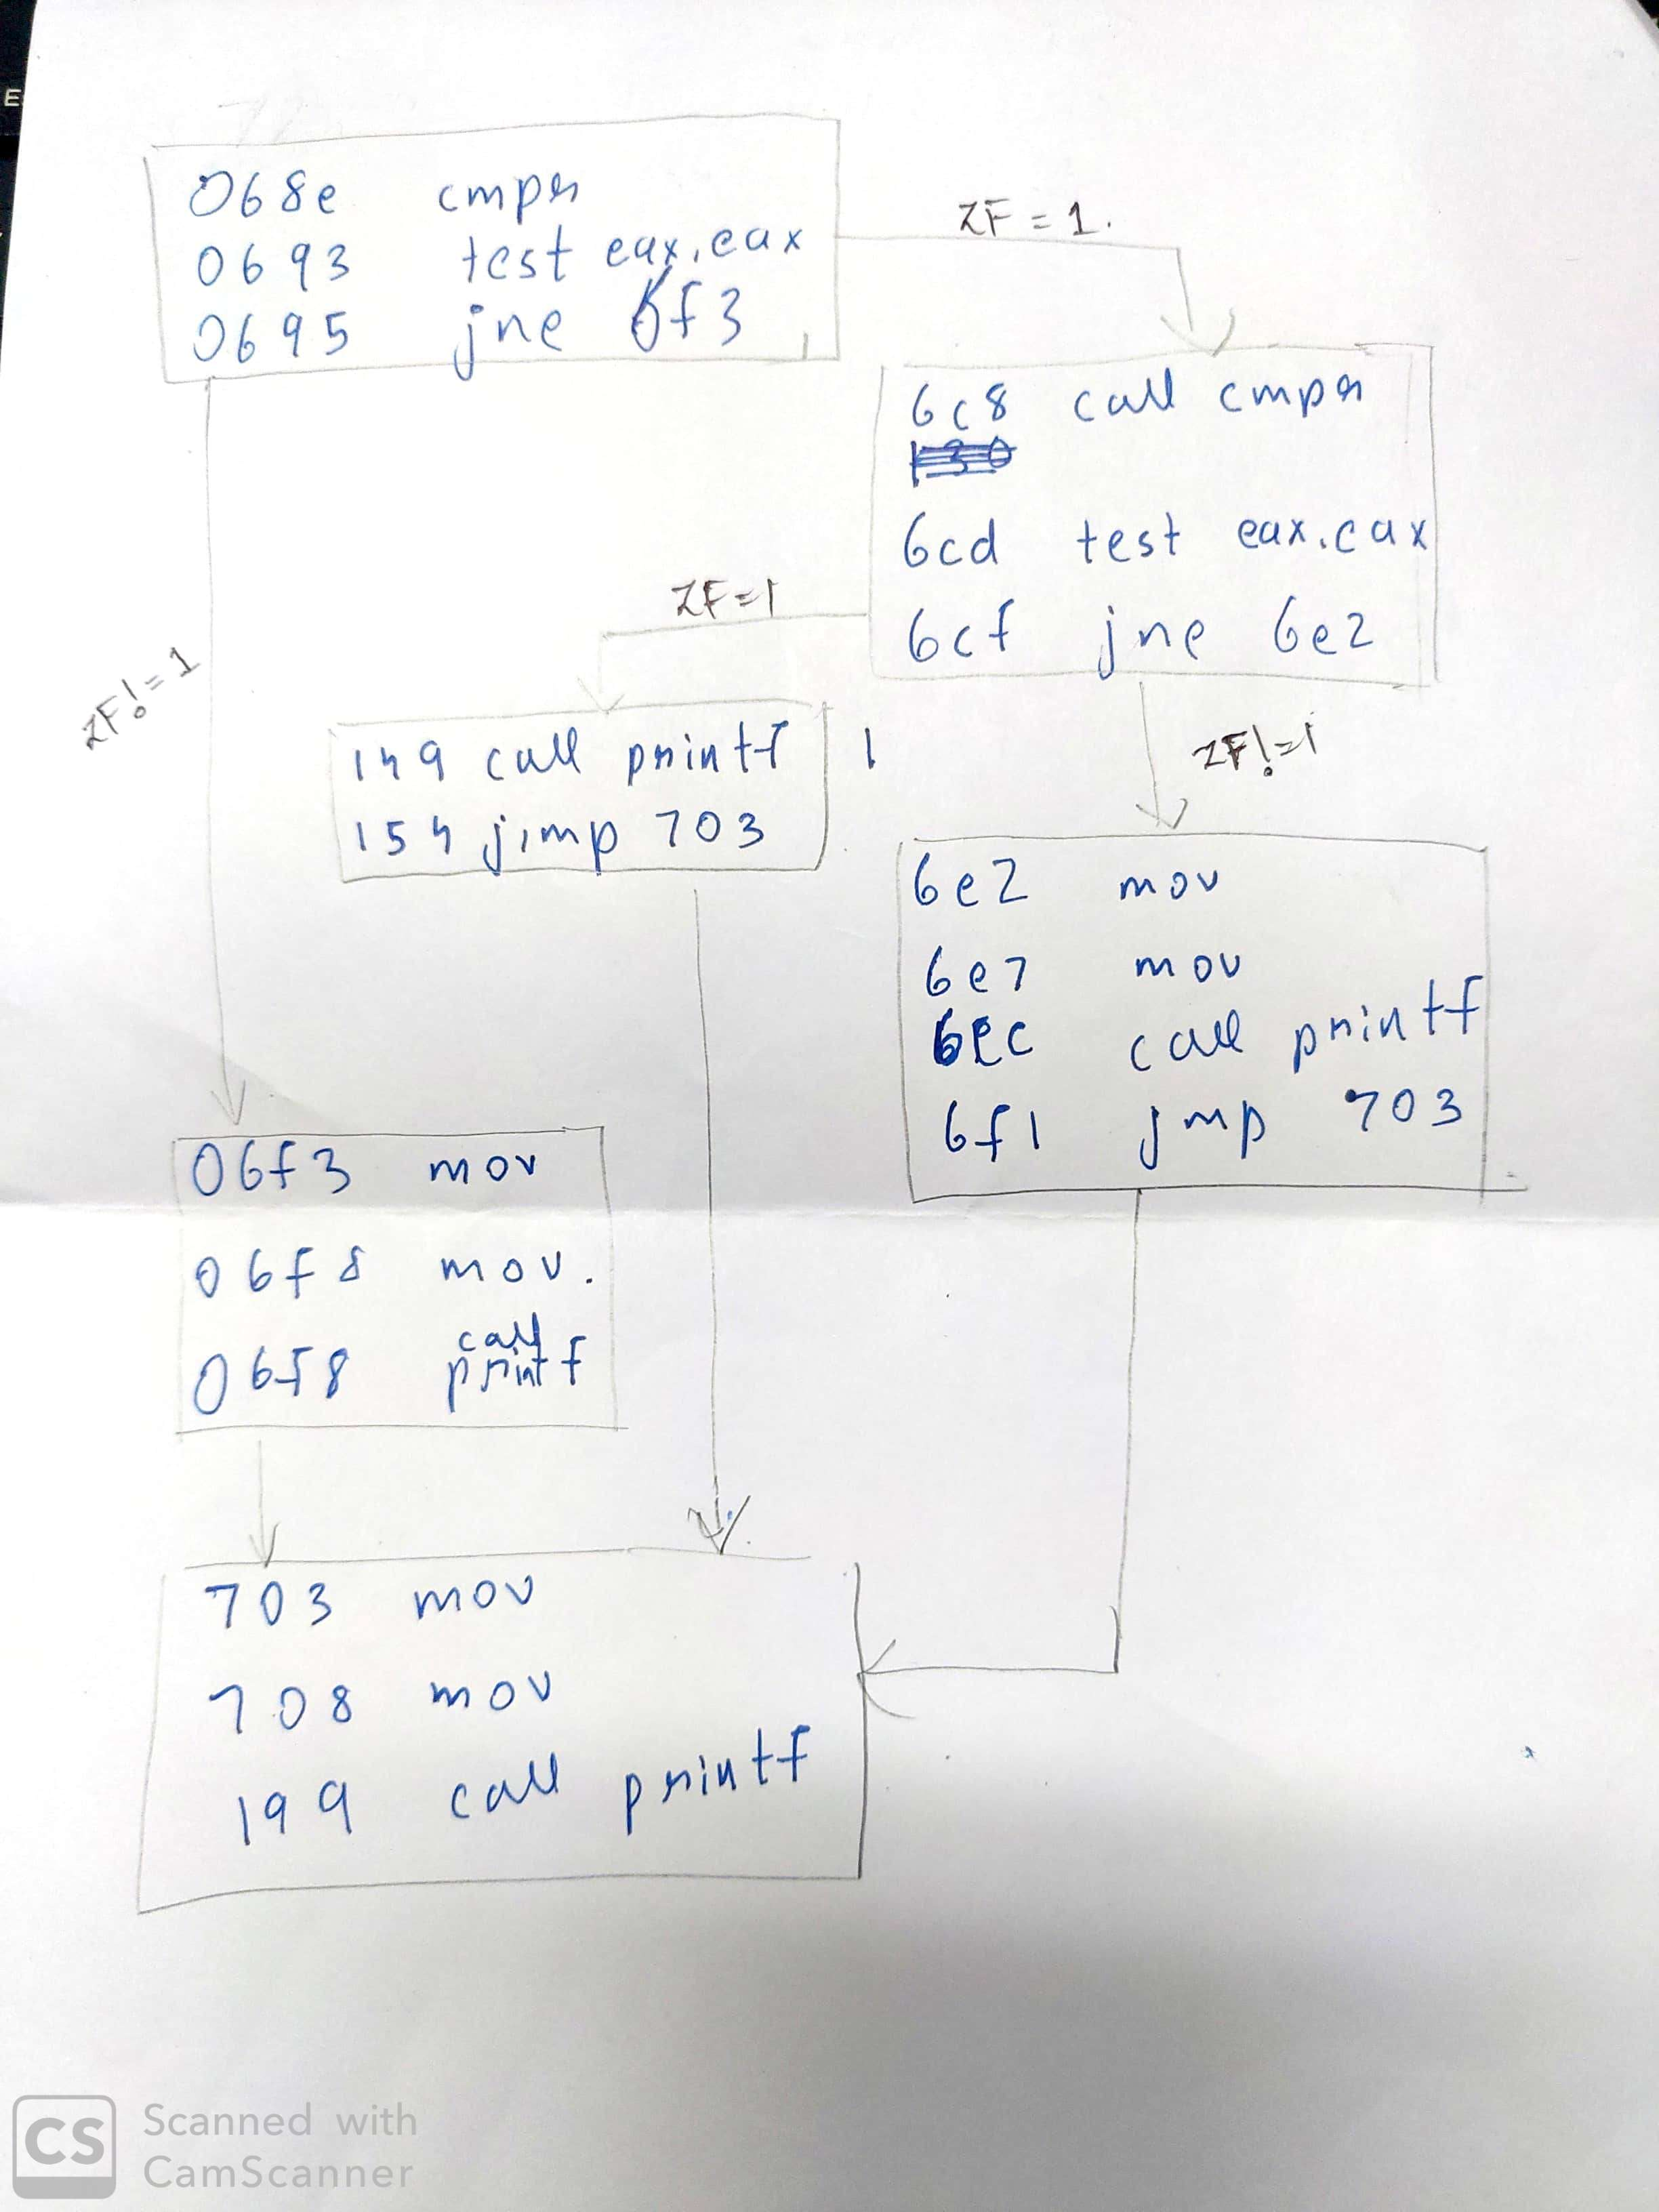 E
068e cmpr
0693 test eax,eax
0695 jne 6f3
ZF = 1.
6c8 call cmpr
6cd test eax,eax
6cf jne 6e2
ZF=1
ZF!=1
149 call printf 1
154 jimp 703
ZF!=1
6e2 mov
6e7 mov
6ec call printf
6f1 jmp 703
06f3 mov
06f8 mov.
06f8 call printf
703 mov
708 mov
199 call printf
CS Scanned with
CamScanner